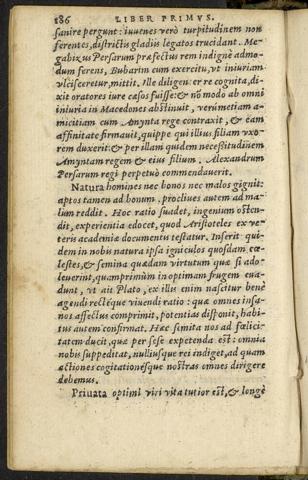 186 LIBER PRIMVS.
sanire pergunt: iuuenes verò turpitudinem non
ferentes, districtis gladiis legatos trucidant. Me-
gabizus Persarum præfectus rem indignè admo-
dum ferens, Bubarim cum exercitu, vt iniuriam
vlcisceretur, mittit. Ille diligenter re cognita, di-
xit oratores iure cæsos fuisse: & nō modo ab omni
iniuria in Macedones abstinuit, verùmetiam a-
micitiam cum Amynta rege contraxit, & eam
affinitate firmauit, quippe qui illius filiam vxo-
rem duxerit: & per illam quidem necessitudinem
Amyntam regem & eius filium Alexandrum
Persarum regi perpetuò commendauerit.
Natura homines nec bonos nec malos gignit:
aptos tamen ad bonum, procliues autem ad ma-
lum reddit. Hoc ratio suadet, ingenium osten-
dit, experientia edocet, quod Aristoteles ex ve-
teris academiæ documentis testatur. Inserit qui-
dem in nobis natura ipsa igniculos quosdam cæ-
lestes, & semina quædam virtutum quæ si ado-
leuerint, quamprimùm in optimam frugem eua-
dunt, vt ait Plato, ex illis enim nascitur benè
agendi rectéque viuendi ratio: quæ omnes insa-
nos affectus comprimit, potentias disponit, habi-
tus autem confirmat. Hæc semita nos ad fælici-
tatem ducit, quæ per sese expetenda est: omnia
nobis suppeditat, nulliúsque rei indiget, ad quam
actiones cogitationésque nostras omnes dirigere
debemus.
Priuata optimi viri vita tutior est, & longè